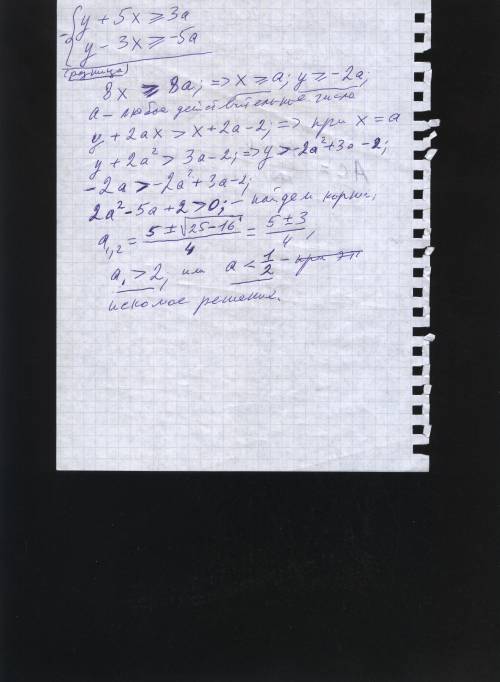 - { y + 5x ≥ 3a
y - 3x ≥ -5a
(разница)
8x ≥ 8a; => x ≥ a; y ≥ -2a;
a - любое действительное число
y + 2ax > x + 2a - 2; => при x = a
y + 2a² > 3a - 2; => y > -2a² + 3a - 2;
-2a > -2a² + 3a - 2;
2a² - 5a + 2 > 0; - найдем корни;
a₁,₂ = (5 ± √(25 - 16))/4 = (5 ± 3)/4,
a₁ > 2, или a < 1/2 - при эт
искомое решение.